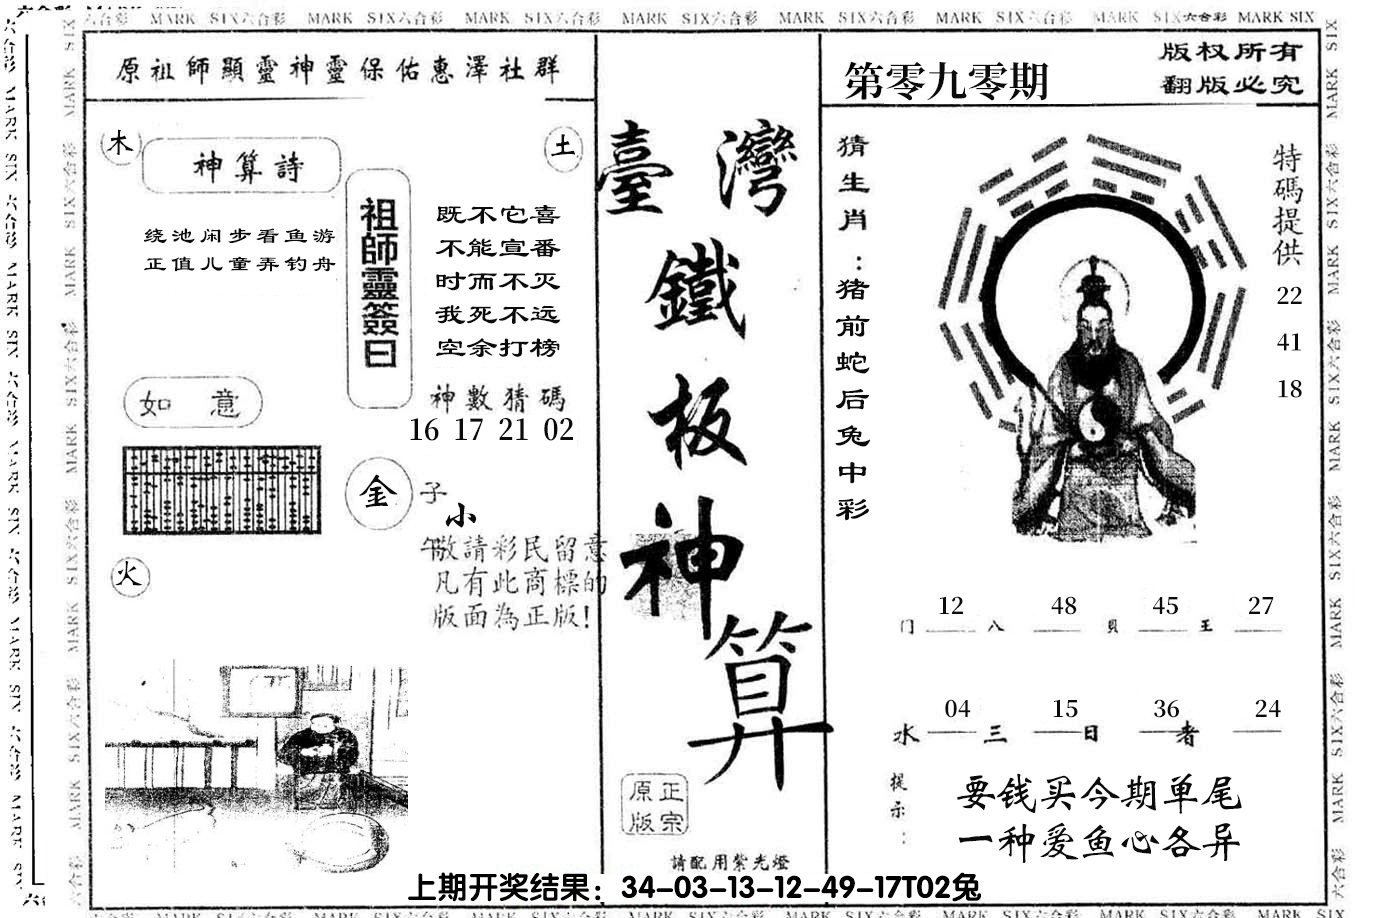 MARK SIX六合彩 MARK SIX六合彩 MARK SIX六合彩 MARK SIX六合彩 MARK SIX六合彩 MARK SIX六合彩 MARK SIX六合彩 MARK SIX
原祖師顯靈神靈保佑惠澤社群
木
土
神算詩
绕池闲步看鱼游
正值儿童弄钓舟
祖師靈簽曰
既不它喜
不能宣番
时而不灭
我死不远
空余打榜
神數猜碼
16 17 21 02
如 意
金
子
小
午
敬請彩民留意
凡有此商標的
版面為正版！
火
臺灣
鐵
板
神
算
正宗
原版
請配用紫光燈
第零九零期
版权所有
翻版必究
猜生肖：猪前蛇后兔中彩
特碼提供
22
41
18
12 48 45 27
门 八 貝 王
04 15 36 24
水 三 日 者
提示：
要钱买今期单尾
一种爱鱼心各异
上期开奖结果：34-03-13-12-49-17T02兔